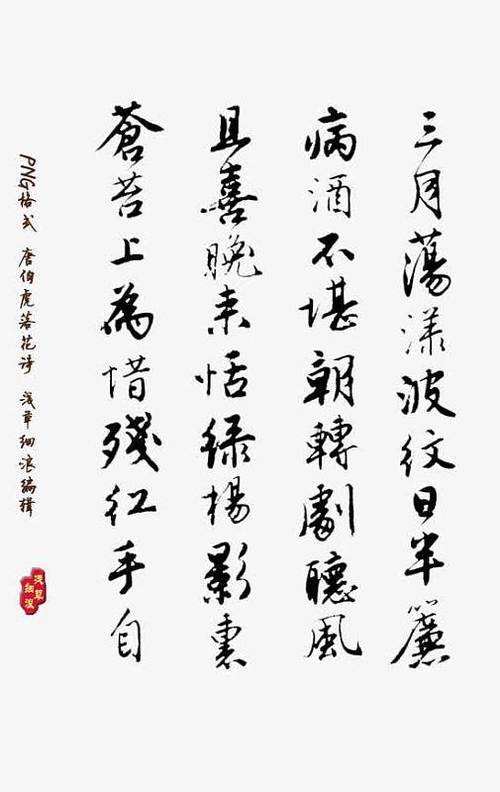 三月蕩漾波纹日半簾
病酒不堪朝轉劇聽風
且喜晚来恬绿楊影裏
蒼苔上為惜殘红手自
PNG格式 唐伯虎落花诗 浅草细浪编辑
浅草细浪